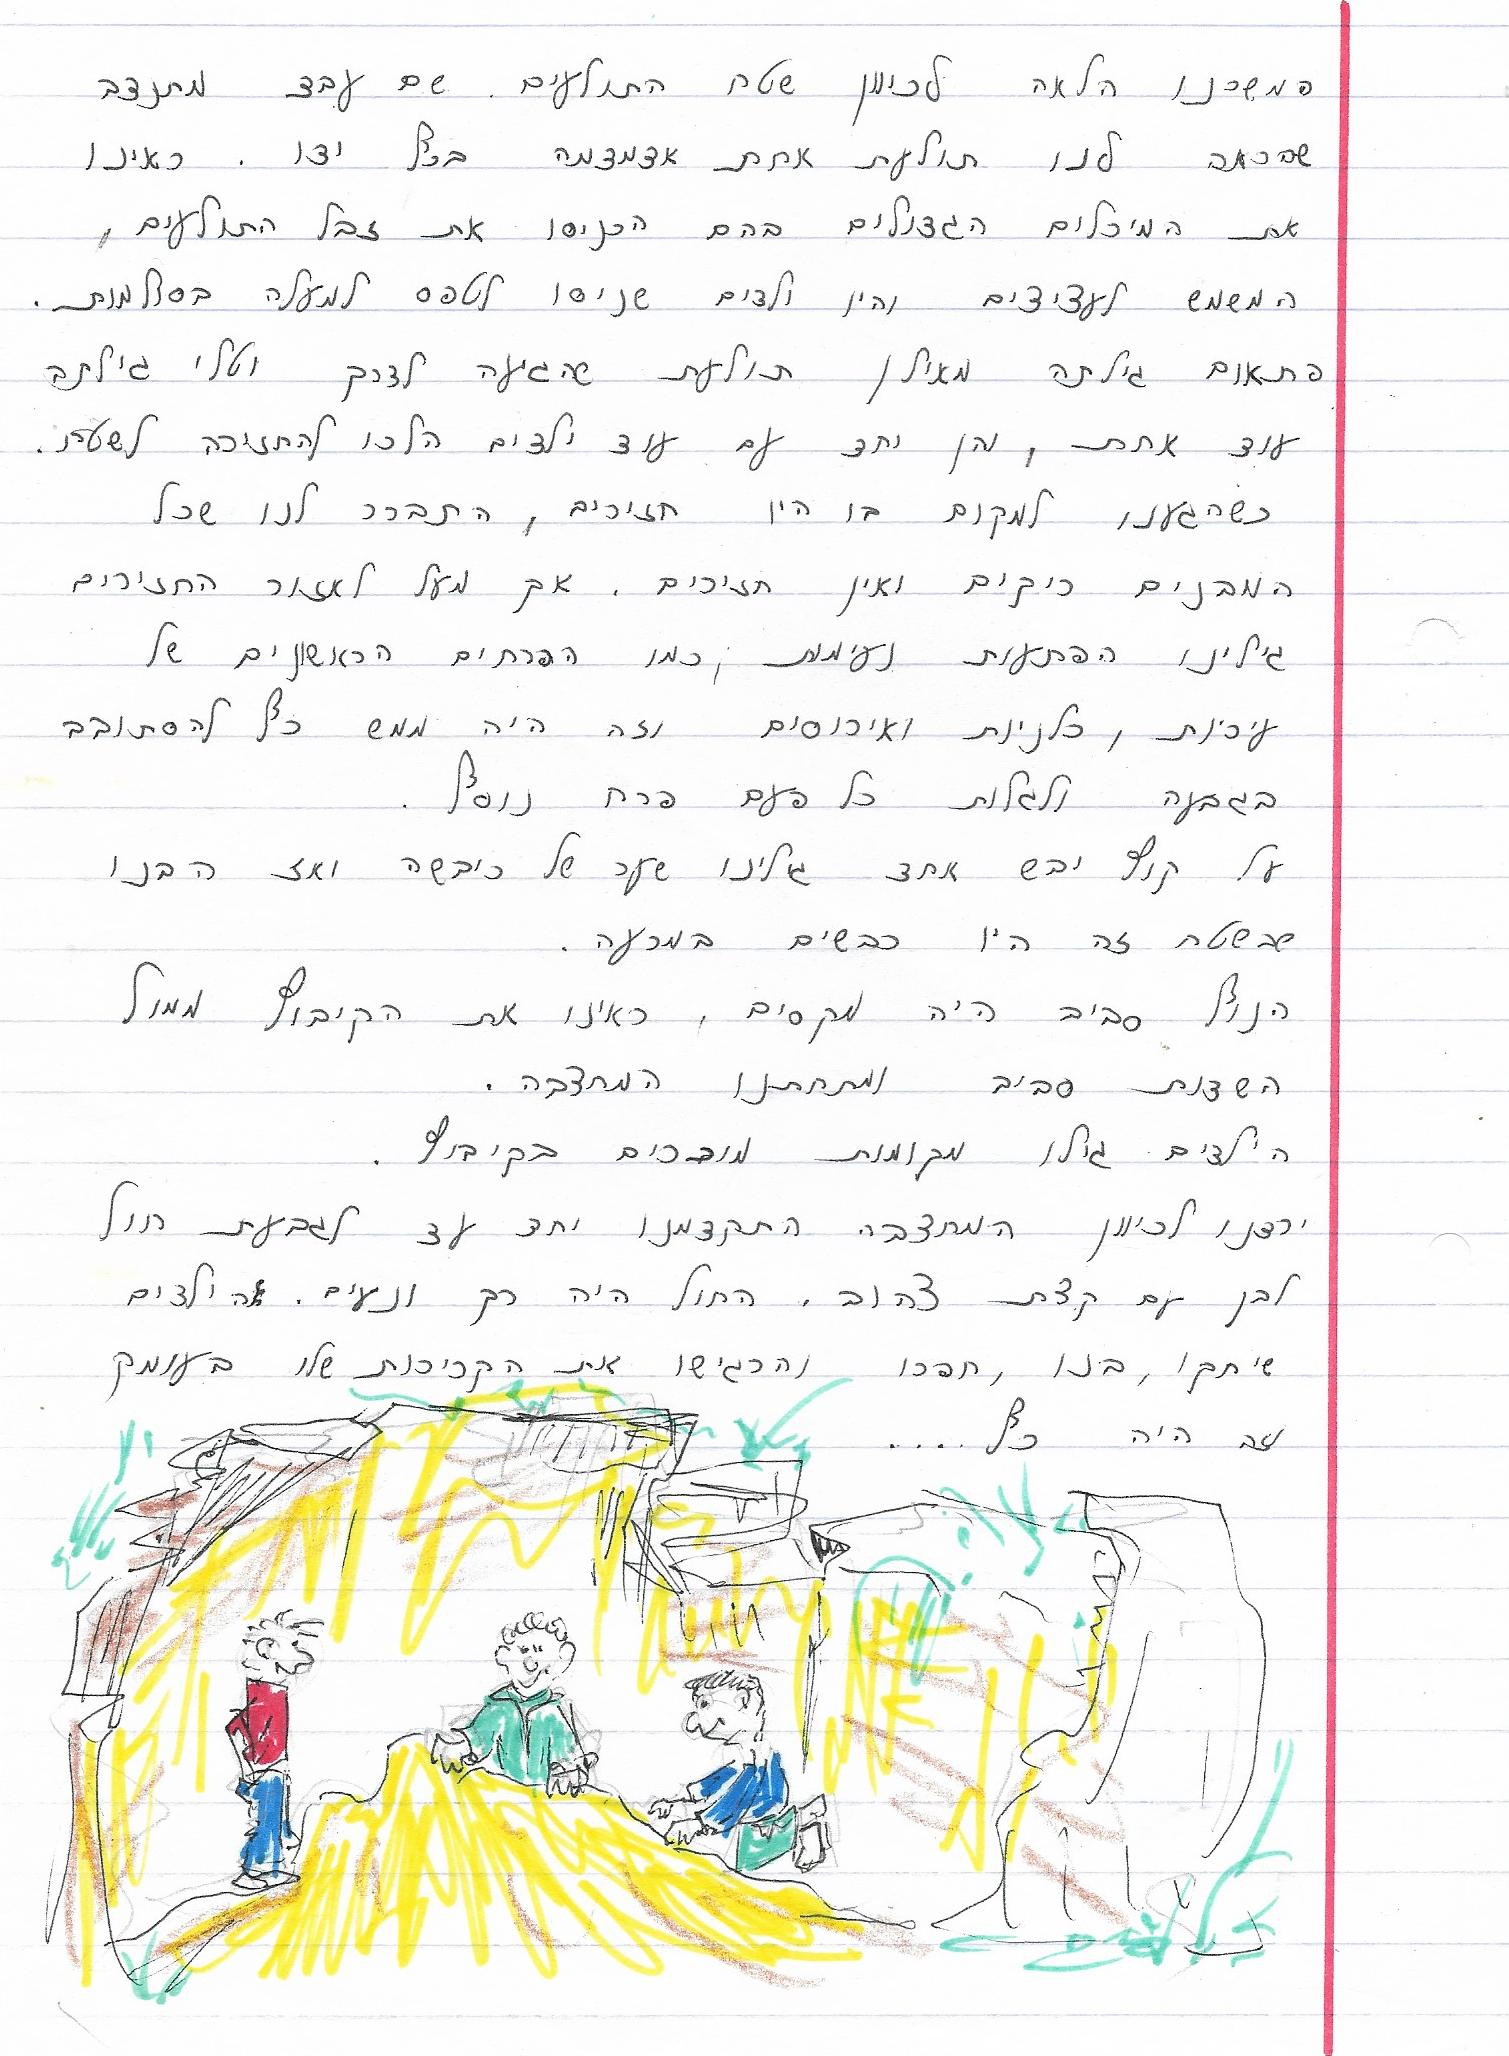 המשכנו הלאה לכיוון שטח התולעים. שם עבד מתנדב
שהראה לנו תולעת אחת אדמדמה בכף ידו. ראינו
את המיכלים הגדולים בהם הכניסו את זבל התולעים,
המשמש לעציצים והיו ילדים שניסו לטפס למעלה בסולמות.
פתאום גילתה מאילן תולעת שהגיעה לדרך וטלי גילתה
עוד אחת, והן יחד עם עוד ילדים הלכו להחזירה לשטח.
כשהגענו למקום בו היו חזירים, התברר לנו שכל
המבנים ריקים ואין חזירים. אך מעל לאזור החזירים
גילינו הפתעות נעימות, כמו הפרחים הראשונים של
עירית, כלנית ואירוסים וזה היה ממש כף להסתובב
בגבעה ולגלות כל פעם פרח נוסף.
על קוץ יבש אחד גילינו שער של כיבשה ואז הבנו
שבשטח זה היו כבשים במרעה.
הנוף סביב היה מקסים, ראינו את הקיבוץ ממול
השדות סביב ומתחתנו המחצבה.
הילדים גילו מקומות מוכרים בקיבוץ.
ירדנו לכיוון המחצבה התקדמנו יחד עד לגבעת חול
לבן עם קצת צהוב. החול היה רך ונעים. הילדים
שיחקו, בנו, חפרו והרגישו את הקרירות שלו בעומק
זה היה כף.....